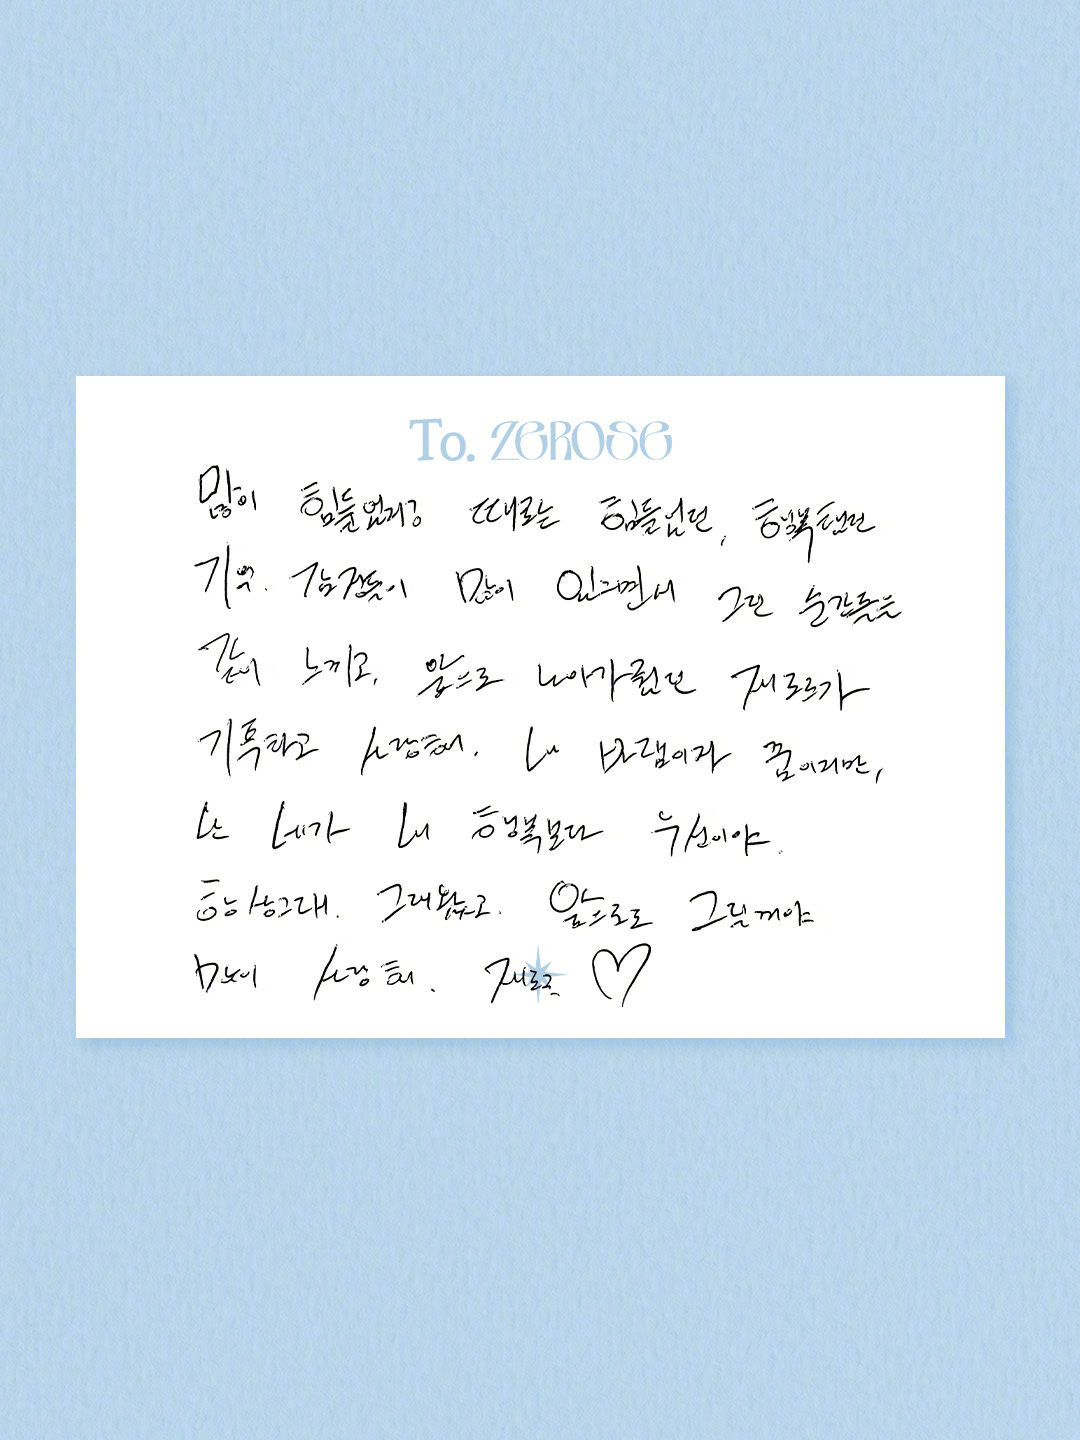 To. ZEROSE
많이 힘들었지? 때로는 힘들었던, 행복했던
기억. 감정들이 많이 있으면서 그런 순간들을
같이 느끼고, 앞으로 나아가줬던 제로즈가
기특하고 사랑해. 내 바램이자 꿈이지만,
난 네가 내 행복보다 우선이야.
항상 그래. 그래왔고. 앞으로도 그럴꺼야
많이 사랑해. 제로즈 ♡